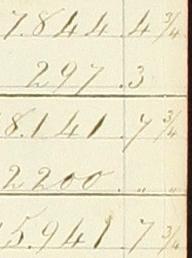 7.844.4 3/4
297.3
8.141.7 3/4
2200. „ „
5.941 7 3/4